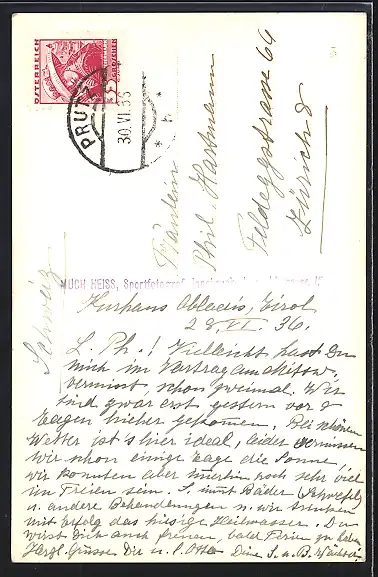 ÖSTERREICH
PRUTZ
30.VI.36
Fräulein
Phil. Hartmann
Feldeggstrasse 69
Zürich 8
Schweiz
MUCH HEISS, Sportfotograf, Innsbruck
Kurhaus Obladis, Tirol
28.VI.36.
L. Ph.! Vielleicht hast Du
mich im Vortrag am
vermisst schon zweimal. Wir
sind zwar erst gestern vor 8
Tagen hieher gekommen. Bei schönem
Wetter ist's hier ideal, leider vermissen
wir schon einige Tage die Sonne,
wir konnten aber immerhin noch sehr viel
im Freien sein. S. nimmt Bäder (Schwefel)
u. andere Behandlungen u. wir trinken
mit Erfolg das hiesige Heilwasser. Du
wirst Dich auch freuen, bald Ferien zu haben.
Herzl. Grüsse Dir u. Otto Deine S. u. B.